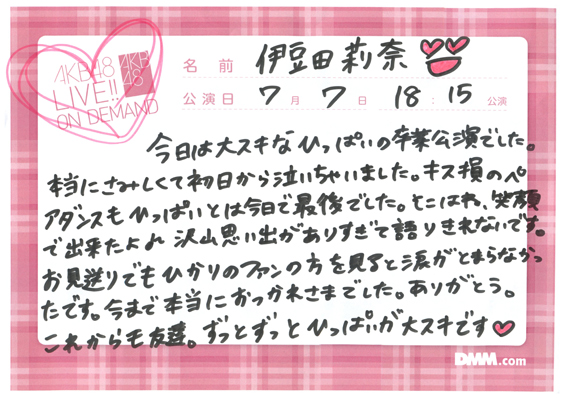 AKB48
LIVE!!
ON DEMAND
AKB
48
名前 伊豆田莉奈
公演日 7月7日 18:15公演
今日は大スキなひっぱいの卒業公演でした。
本当にさみしくて初日から泣いちゃいました。キス損のペ
アダンスもひっぱいとは今日で最後でした。そこはね、笑顔
で出来たよれ 沢山思い出がありすぎて語りきれないです。
お見送りでもひかりのファンの方を見ると涙がとまらなかっ
たです。今まで本当におつかれさまでした。ありがとう。
これからも友達。ずっとずっとひっぱいが大スキです
DMM.com